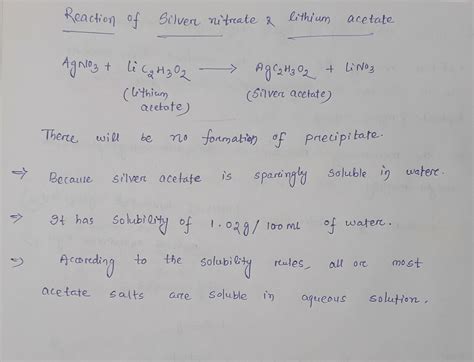 Reaction of Silver nitrate & lithium acetate
AgNO3 + LiC2H3O2 → AgC2H3O2 + LiNO3
(Lithium acetate) (Silver acetate)
There will be no formation of precipitate.
⇒ Because silver acetate is sparingly soluble in water.
⇒ It has solubility of 1.02g/100ml of water.
⇒ According to the solubility rules, all or most
acetate salts are soluble in aqueous solution.